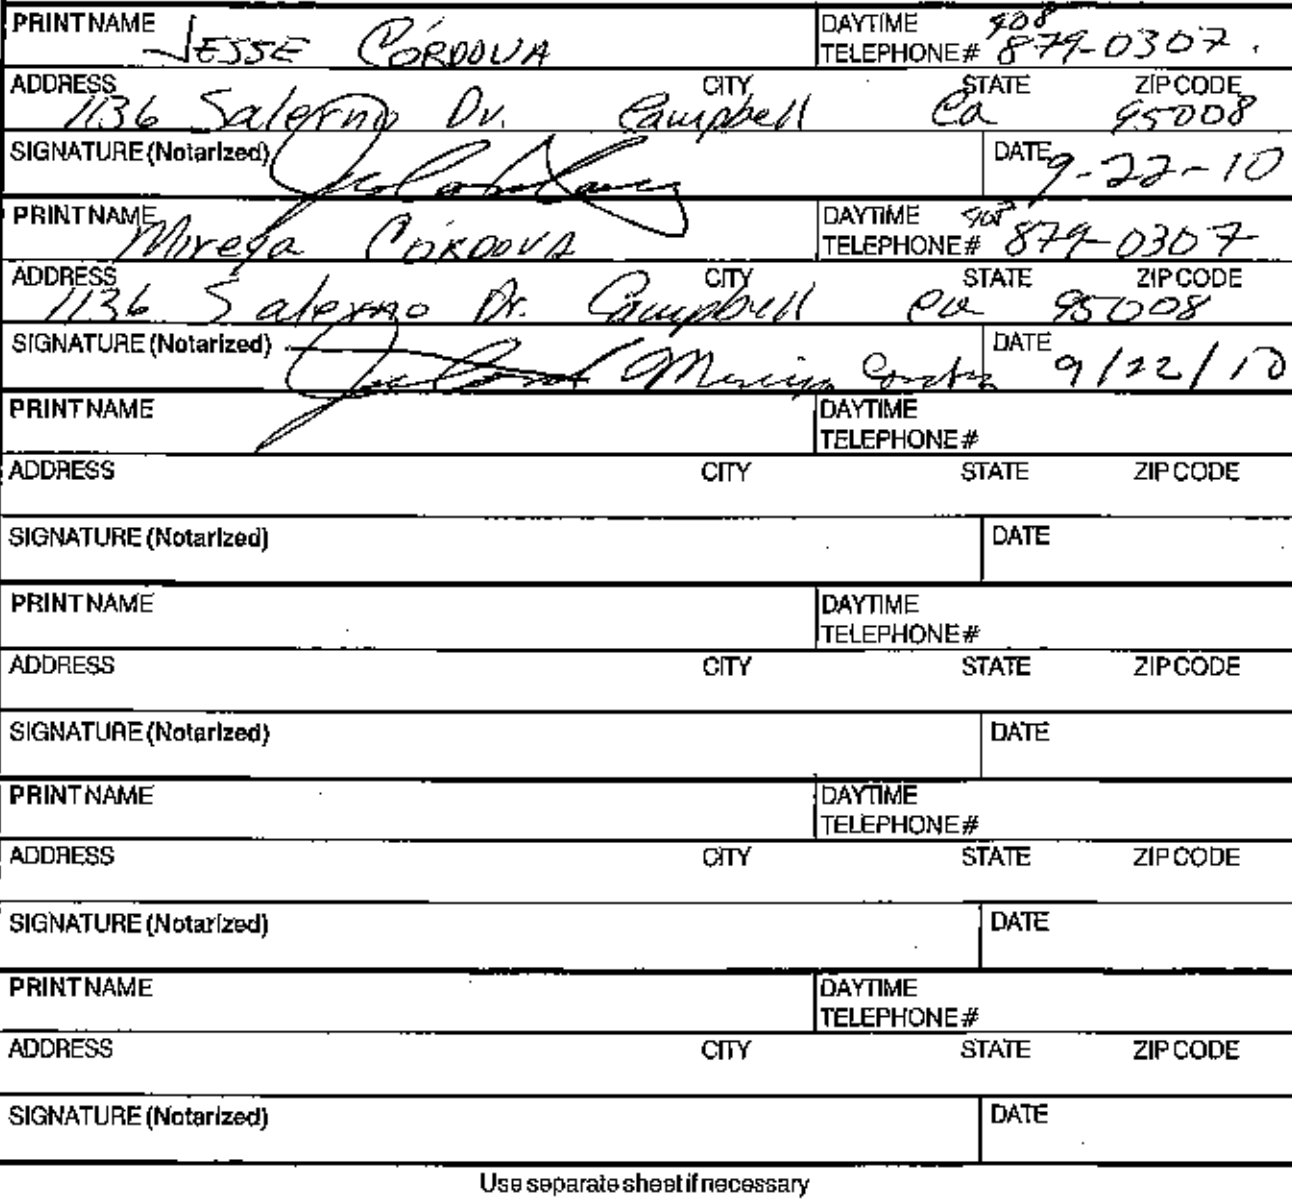 PRINT NAME JESSE CÓRDOVA DAYTIME TELEPHONE # 408 879-0307
ADDRESS CITY STATE ZIP CODE
1136 Salerno Dr. Campbell Ca 95008
SIGNATURE (Notarized) DATE 9-22-10
PRINT NAME Mireya CÓRDOVA DAYTIME TELEPHONE # 408 879-0307
ADDRESS CITY STATE ZIP CODE
1136 Salerno Dr. Campbell Ca 95008
SIGNATURE (Notarized) DATE 9/22/10
PRINT NAME DAYTIME
TELEPHONE #
ADDRESS CITY STATE ZIP CODE
SIGNATURE (Notarized) DATE
PRINT NAME DAYTIME
TELEPHONE #
ADDRESS CITY STATE ZIP CODE
SIGNATURE (Notarized) DATE
PRINT NAME DAYTIME
TELEPHONE #
ADDRESS CITY STATE ZIP CODE
SIGNATURE (Notarized) DATE
PRINT NAME DAYTIME
TELEPHONE #
ADDRESS CITY STATE ZIP CODE
SIGNATURE (Notarized) DATE
Use separate sheet if necessary